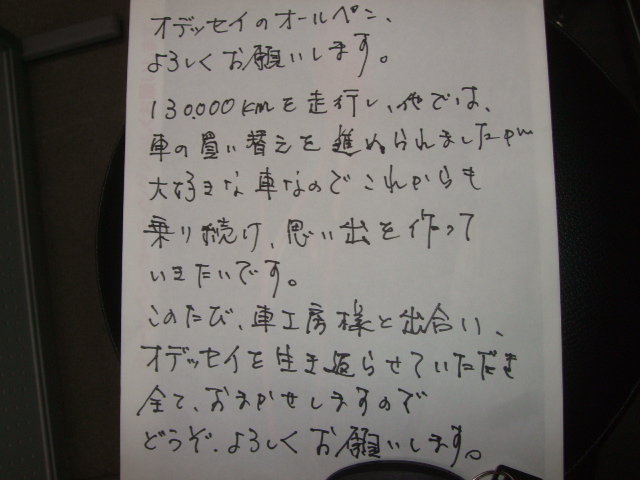 オデッセイのオールペン、
よろしくお願いします。
130.000kmを走行し、他では、
車の買い替えを進められましたが
大好きな車なのでこれからも
乗り続け、思い出を作って
いきたいです。
このたび、車工房様と出合い、
オデッセイを生き返らせていただき
全て、おまかせしますので
どうぞ、よろしくお願いします。